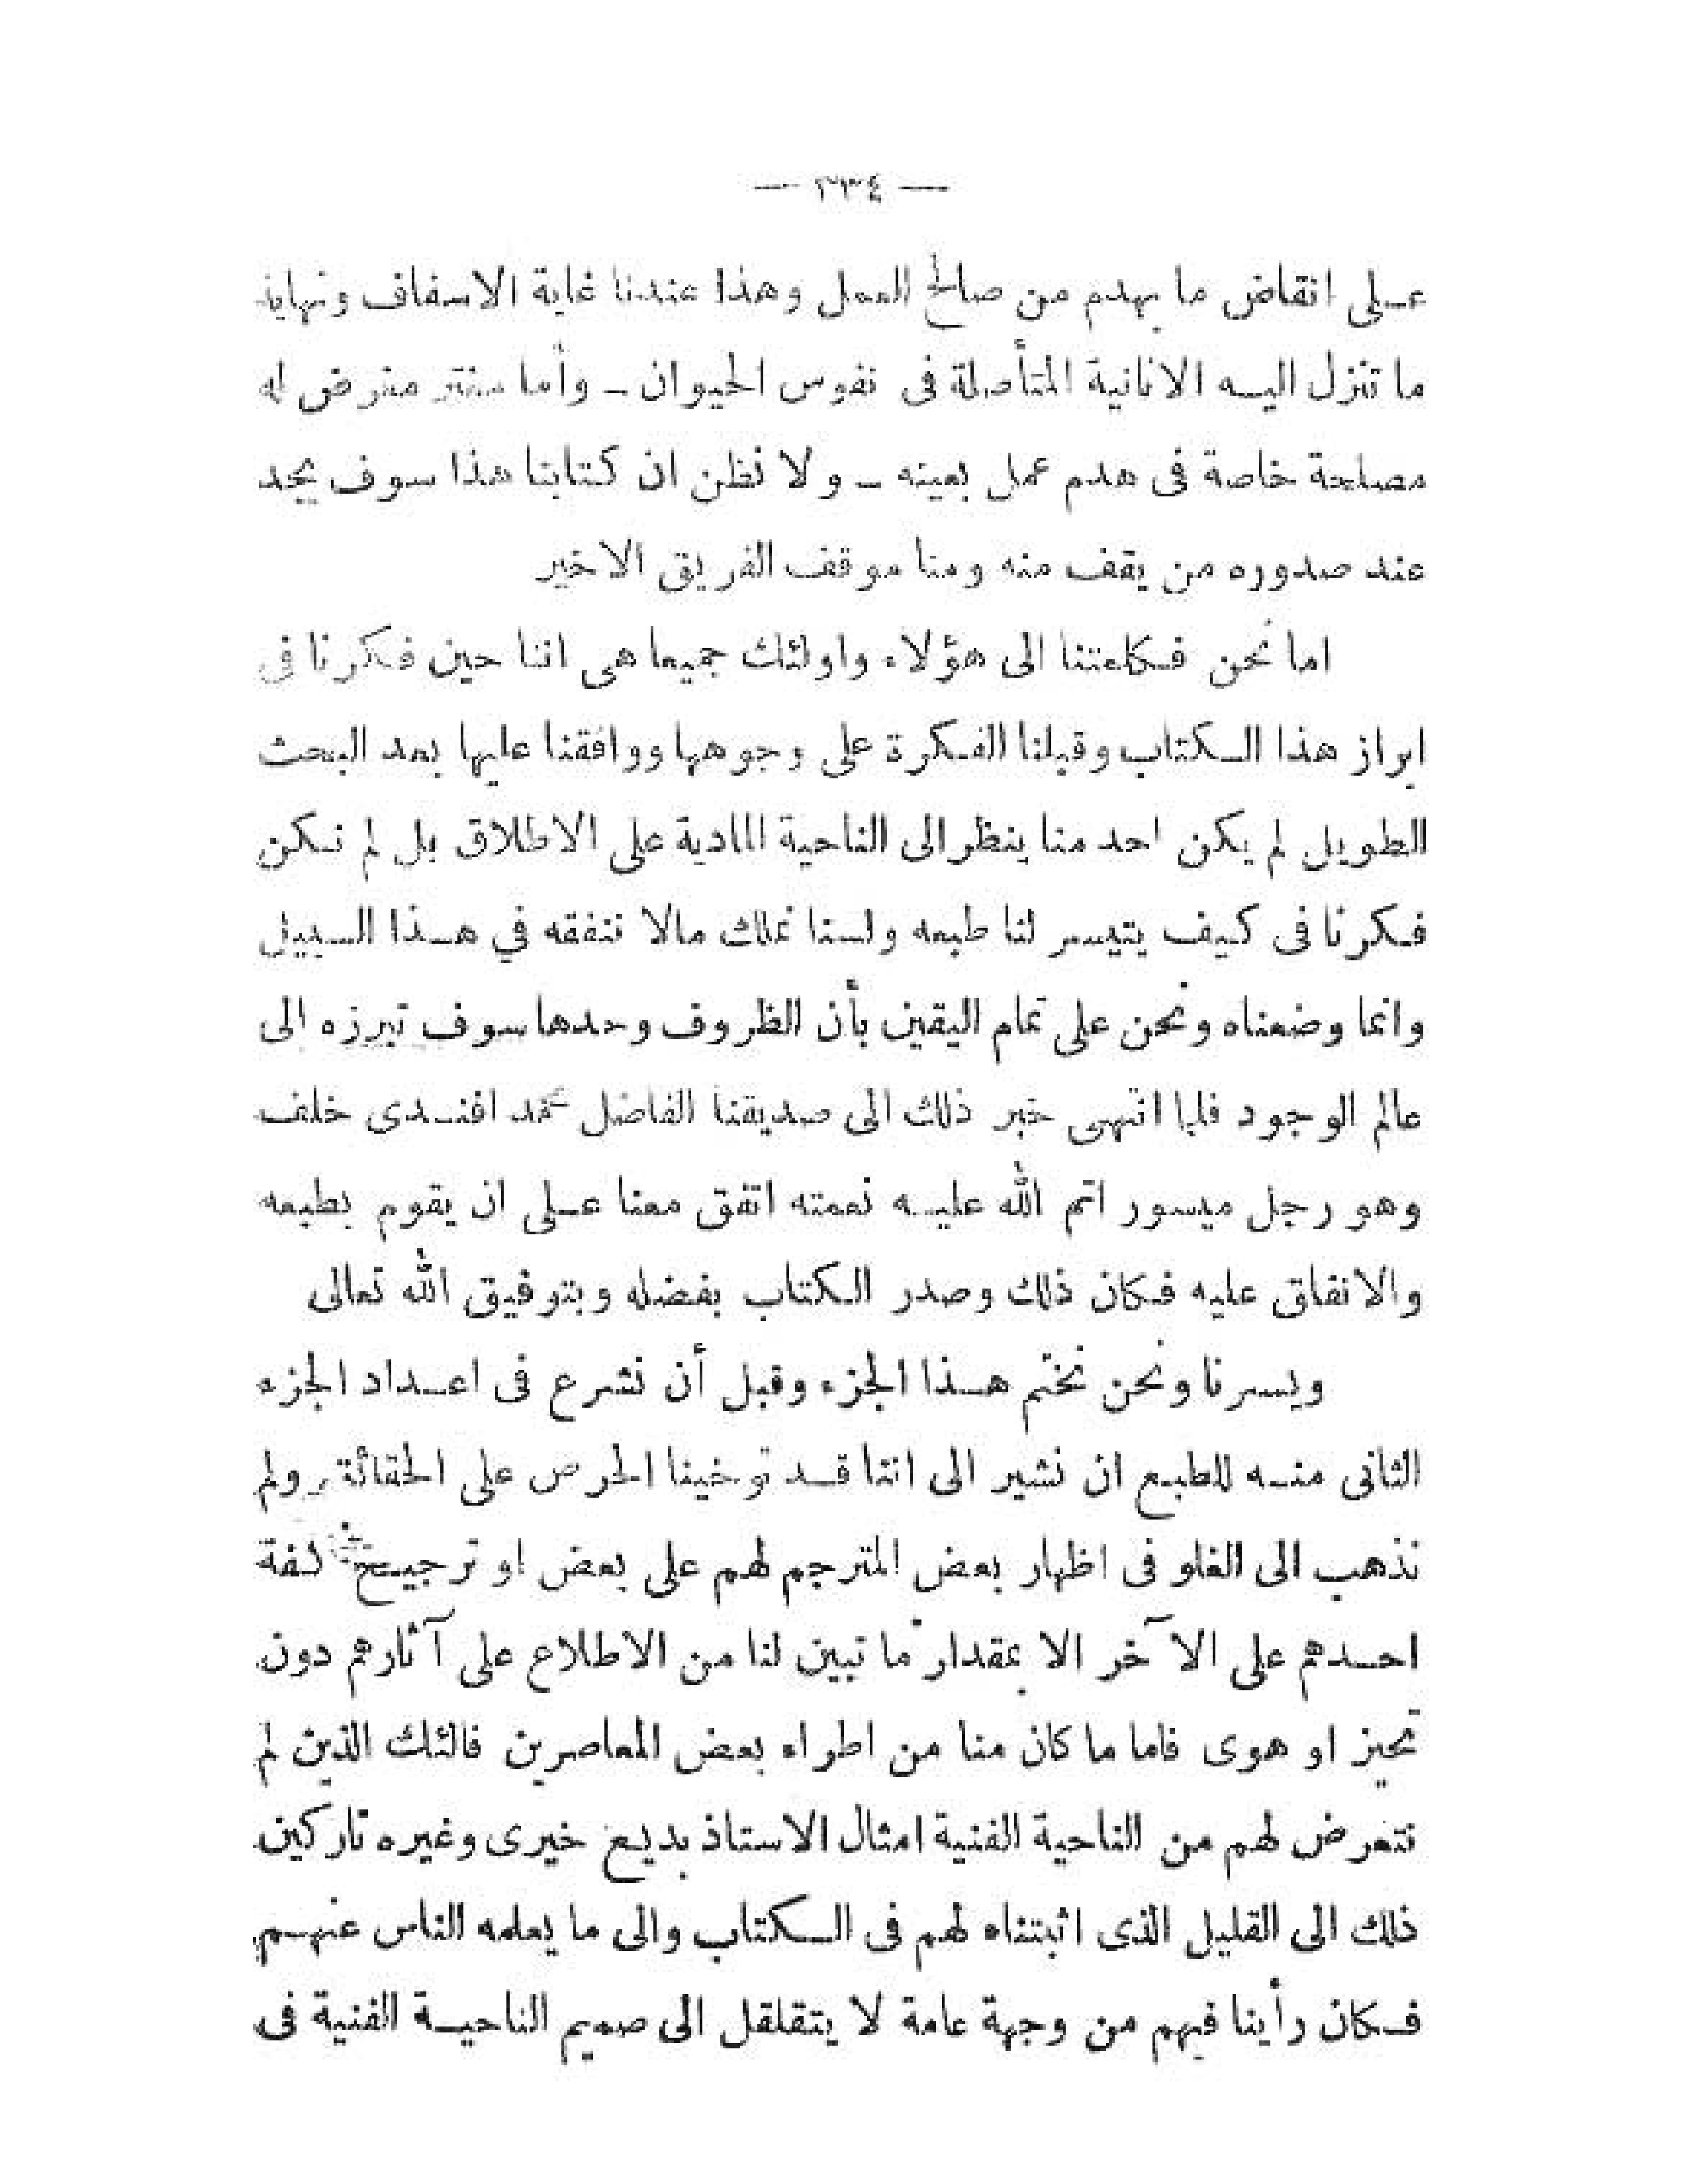 — ٢٣٤ —
عـلى انقاض ما يهدم من صالح العمل وهذا عندنا غاية الاسفاف ونهاية
ما تنزل اليـه الانانية المتأصلة فى نفوس الحيوان ـ وأما مغرض له
مصلحة خاصة فى هدم عمل بعينه ـ ولا نظن ان كتابنا هذا سوف يجد
عند صدوره من يقف منه ومنا موقف الفريق الاخير
اما نحن فـكلمتنا الى هؤلاء واولئك جميعا هى اننا حين فـكرنا فى
ابراز هذا الـكتاب وقبلنا الفـكرة على وجوهها ووافقنا عليها بعد البحث
الطويل لم يكن احد منا ينظر الى الناحية المادية على الاطلاق بل لم نـكن
فـكرنا فى كيف يتيسر لنا طبعه ولسنا نملك مالا ننفقه في هـذا السـبيل
وانما وضعناه ونحن على تمام اليقين بأن الظروف وحدها سوف تبرزه الى
عالم الوجود فلما انتهى خبر ذلك الى صديقنا الفاضل محمد افنـدى خلف
وهو رجل ميسور اتم الله عليـه نعمته اتفق معنا عـلى ان يقوم بطبعه
والانفاق عليه فـكان ذلك وصدر الـكتاب بفضله وبتوفيق الله تعالى
ويسرنا ونحن نختم هـذا الجزء وقبل أن نشرع فى اعـداد الجزء
الثانى منـه للطبـع ان نشير الى اننا قـد توخينا الحرص على الحقائق ولم
نذهب الى الغلو فى اظهار بعض المترجم لهم على بعض او ترجيـح كفة
احـدهم على الآخر الا بمقدار ما تبين لنا من الاطلاع على آثارهم دون
تحيز او هوى فاما ما كان منا من اطراء بعض المعاصرين فالئك الذين لم
نتعرض لهم من الناحية الفنية امثال الاستاذ بديـع خيرى وغيره تاركين
ذلك الى القليل الذى اثبتناه لهم فى الـكتاب والى ما يعلمه الناس عنهـم
فـكان رأينا فيهم من وجهة عامة لا يتقلقل الى صميم الناحيـة الفنية فى